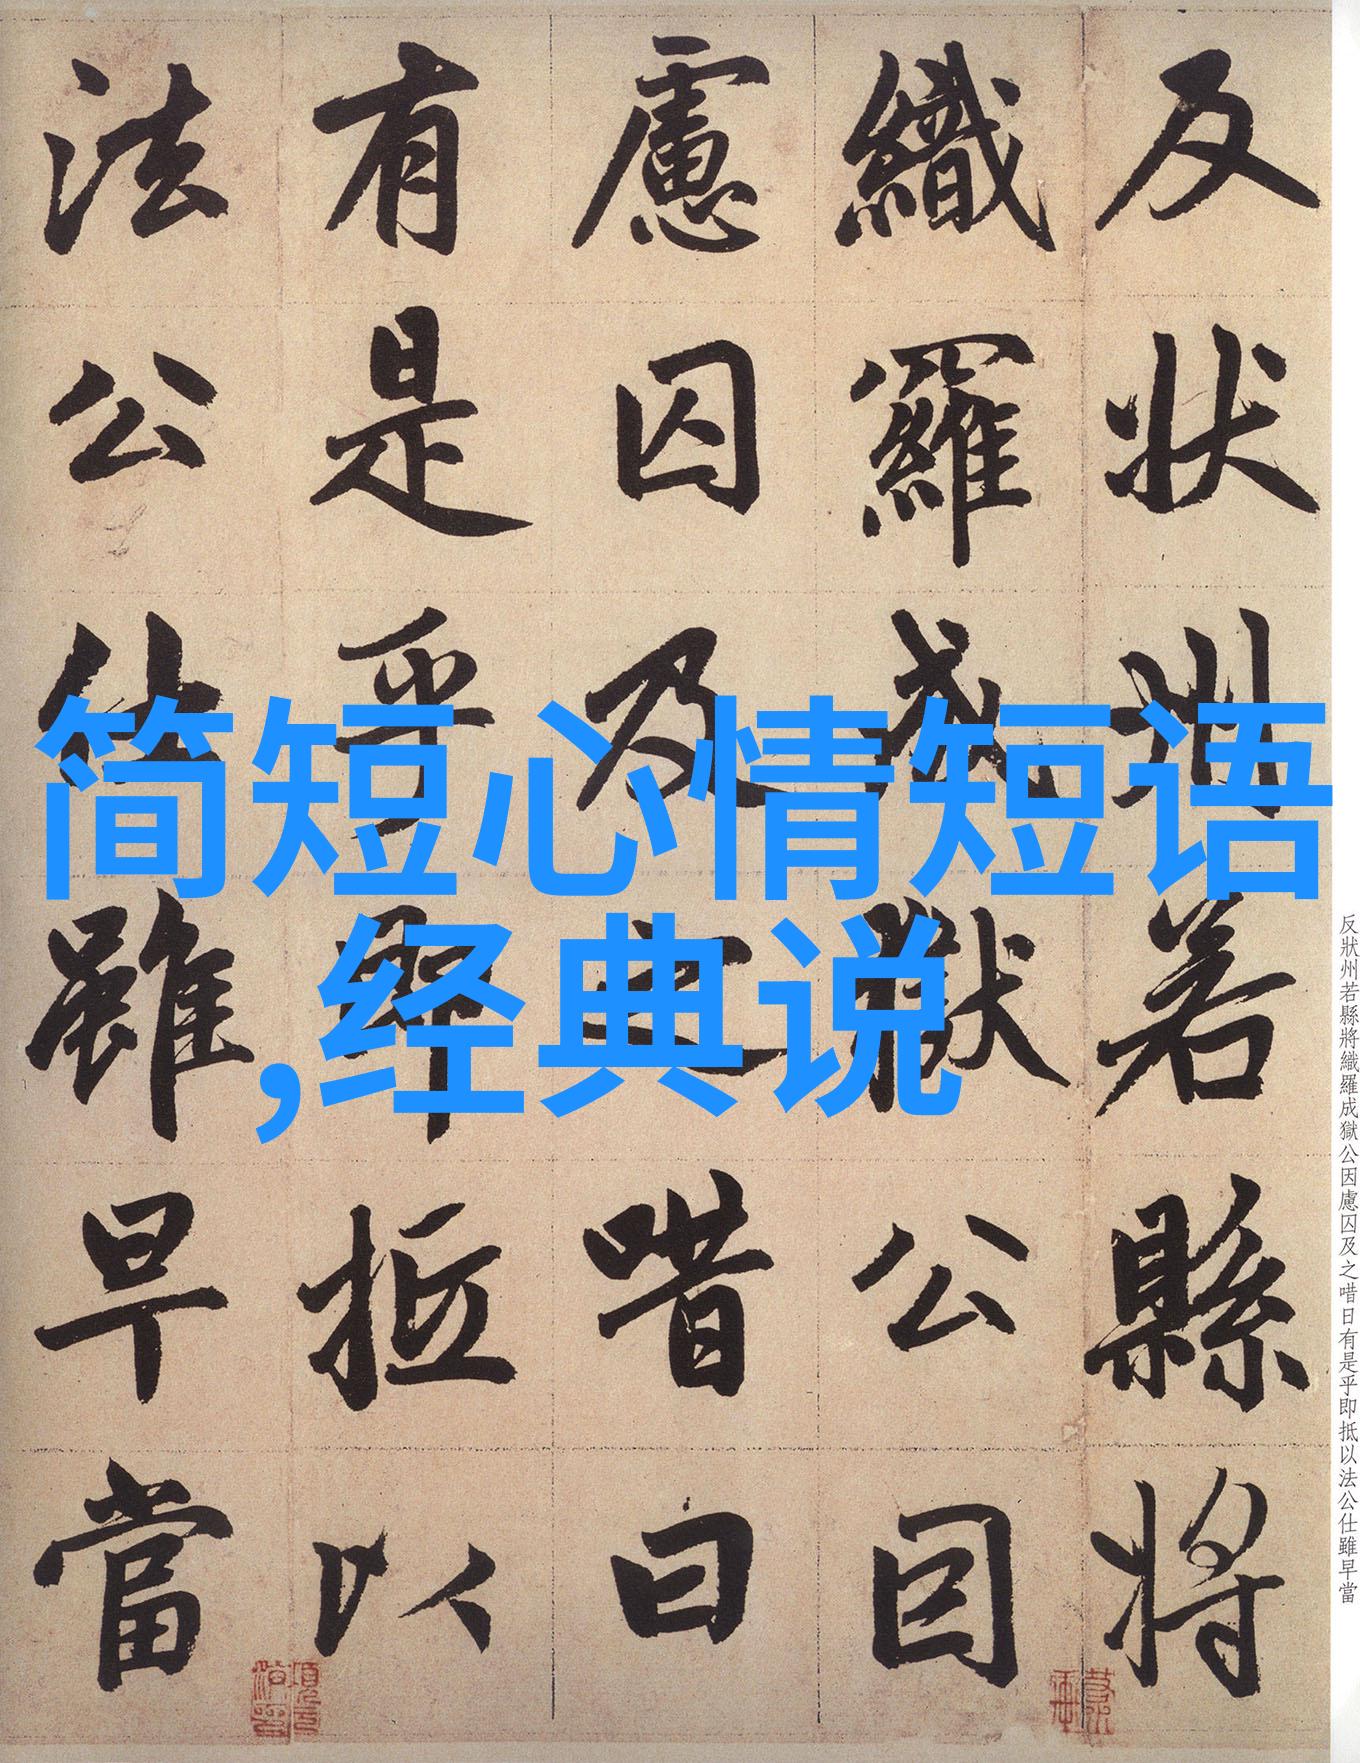 反状州若縣將
織羅成獄公因
慮囚及之唶曰
有是乎即抵以
法公仕雖早當
简短心情短语
,经典说
反狀州若縣將織羅成獄公因慮囚及之唶日有是乎即抵以法公仕雖早當